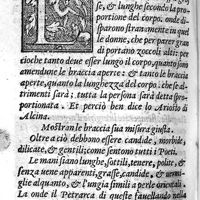 se, & lunghe secondo la pro
portione del corpo. onde di
sparono stranamente in quel
le donne, che per parer gran
di portano zoccoli alti: per
cioche tanto deue esser lungo il corpo, quanto siano
amendune le braccia aperte: & tanto le braccia
aperte, quanto la lunghezza del corpo: che se al
trimenti sarà; tutta la persona sarà detta spro
portionata. Et perciò ben dice lo Ariosto di
Alcina.
Mostran le braccia sua misura giusta.
Oltre a ciò debbono essere candide, morbide,
dilicate, & gentili; come sono tutti i Poeti.
Le mani siano lunghe, sottili, tenere, polite, &
senza uene apparenti, grasse, candide, &
glie alquanto, & l'ungia simili a perle orientali.
La onde il Petrarca di queste fauellando nella